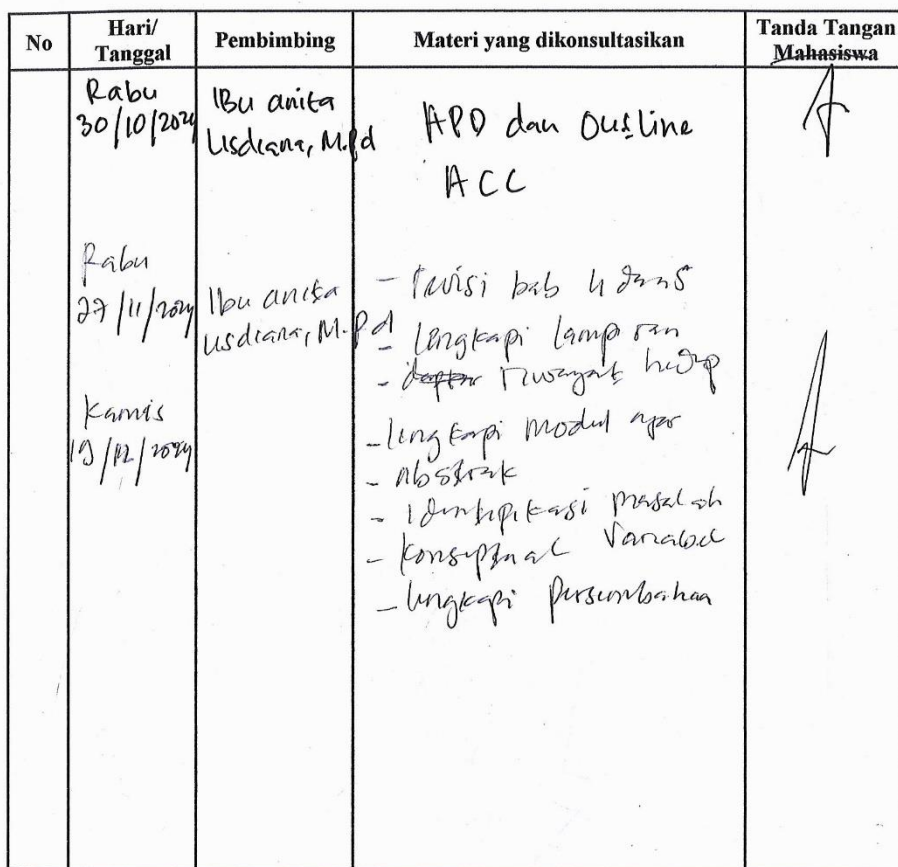 No
Hari/
Tanggal
Pembimbing
Materi yang dikonsultasikan
Tanda Tangan
Mahasiswa
Rabu
30/10/2024
IBu anita
Lisdiana, M.Pd
APD dan Outline
ACC
Rabu
27/11/2024
Ibu anita
Lisdiana, M.Pd
- Revisi bab 4 dan 5
- lengkapi lampiran
- daftar riwayat hidup
Kamis
19/12/2024
- lengkapi modul ajar
- Abstrak
- Identifikasi masalah
- Konseptual Variabel
- lengkapi Persembahan